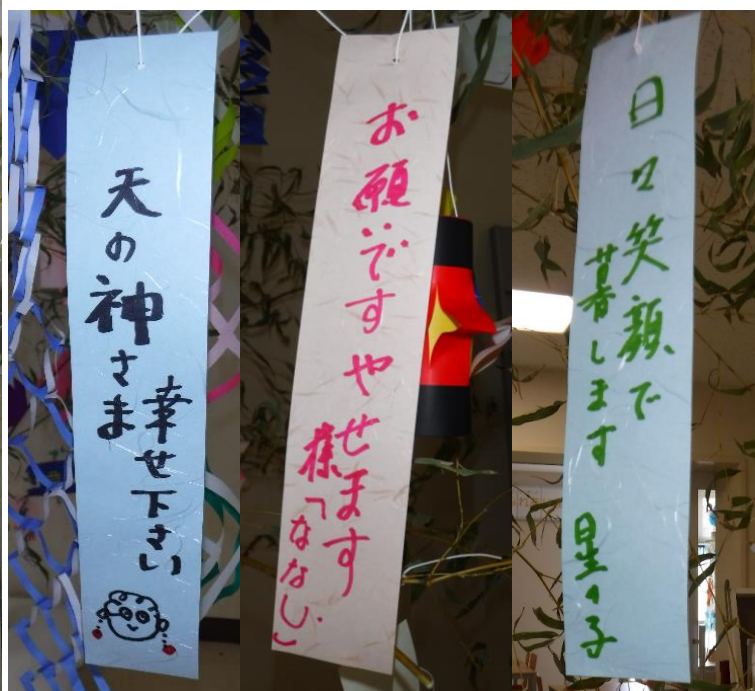 天の神さま
幸せ下さい
お願いですやせます
様「ななし」
日々笑顔で
暮します
星々子